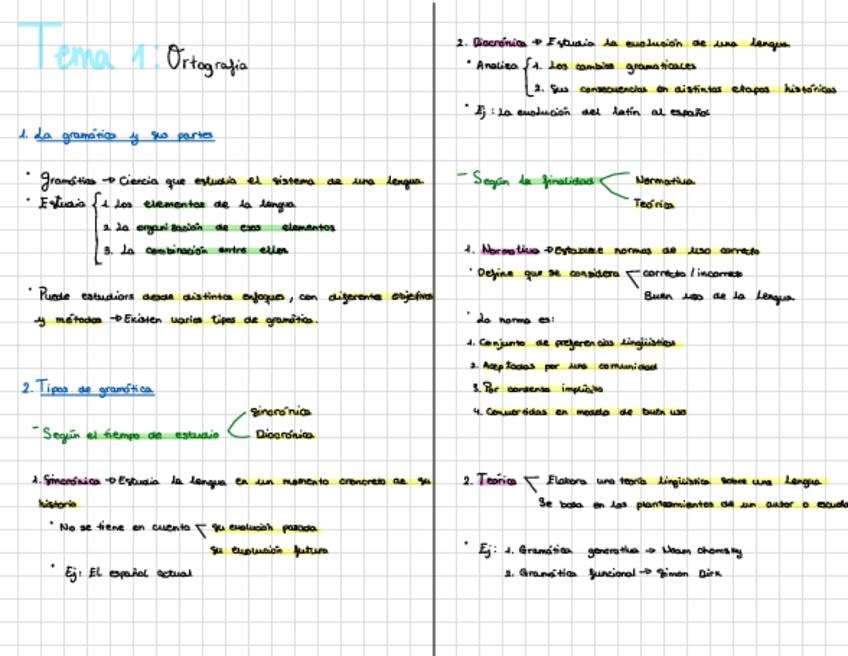 Tema 1: Ortografía
1. La gramática y sus partes
• Gramática → Ciencia que estudia el sistema de una lengua
• Estudia { 1. Los elementos de la lengua
2. La organización de esos elementos
3. La combinación entre ellos
• Puede estudiars desde distintos enfoques, con diferentes objetivos
y métodos → Existen varios tipos de gramática.
2. Tipos de gramática
- Según el tiempo de estudio < Sincrónica
Diacrónica
1. Sincrónica → Estudia la lengua en un momento concreto de su
historia
• No se tiene en cuenta < su evolución pasada
su evolución futura
• Ej: El español actual
2. Diacrónica → Estudia la evolución de una lengua
• Analiza { 1. Los cambios gramaticales
2. Sus consecuencias en distintas etapas históricas
• Ej: La evolución del latín al español
- Según la finalidad < Normativa
Teórica
1. Normativa → Establece normas de uso correcto
• Define que se considera < correcto / incorrecto
Buen uso de la lengua
• La norma es:
1. Conjunto de preferencias lingüísticas
2. Aceptadas por una comunidad
3. Por consenso implícito
4. Convertidas en modelo de buen uso
2. Teórica < Elabora una teoría lingüística sobre una lengua
Se basa en los planteamientos de un autor o escuela
• Ej: 1. Gramática generativa → Noam Chomsky
2. Gramática funcional → Simon Dirk